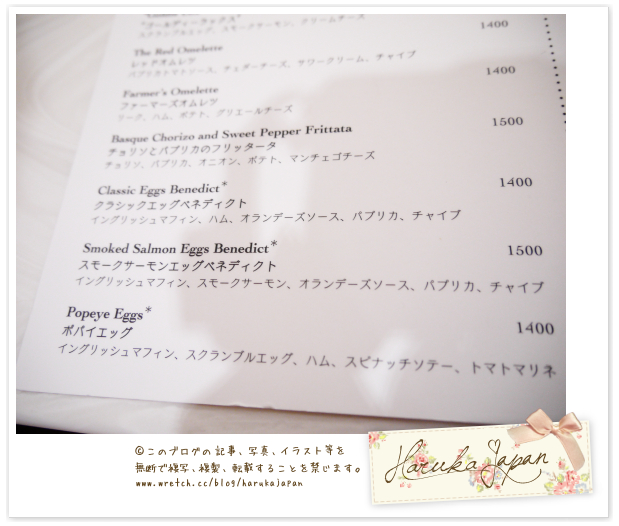 "グールディーラックス"
スクランブルエッグ、スモークサーモン、クリームチーズ
1400
The Red Omelette
レッドオムレツ
パプリカトマトソース、チェダーチーズ、サワークリーム、チャイブ
1400
Farmer's Omelette
ファーマーズオムレツ
リーク、ハム、ポテト、グリエールチーズ
1500
Basque Chorizo and Sweet Pepper Frittata
チョリソとパプリカのフリッタータ
チョリソ、パプリカ、オニオン、ポテト、マンチェゴチーズ
1400
Classic Eggs Benedict*
クラシックエッグベネディクト
イングリッシュマフィン、ハム、オランデーズソース、パプリカ、チャイブ
1500
Smoked Salmon Eggs Benedict*
スモークサーモンエッグベネディクト
イングリッシュマフィン、スモークサーモン、オランデーズソース、パプリカ、チャイブ
1400
Popeye Eggs*
ポパイエッグ
イングリッシュマフィン、スクランブルエッグ、ハム、スピナッチソテー、トマトマリネ
©このブログの記事、写真、イラスト等を
無断で複写、複製、転載することを禁じます。
www.wretch.cc/blog/harukajapan
Haruka Japan